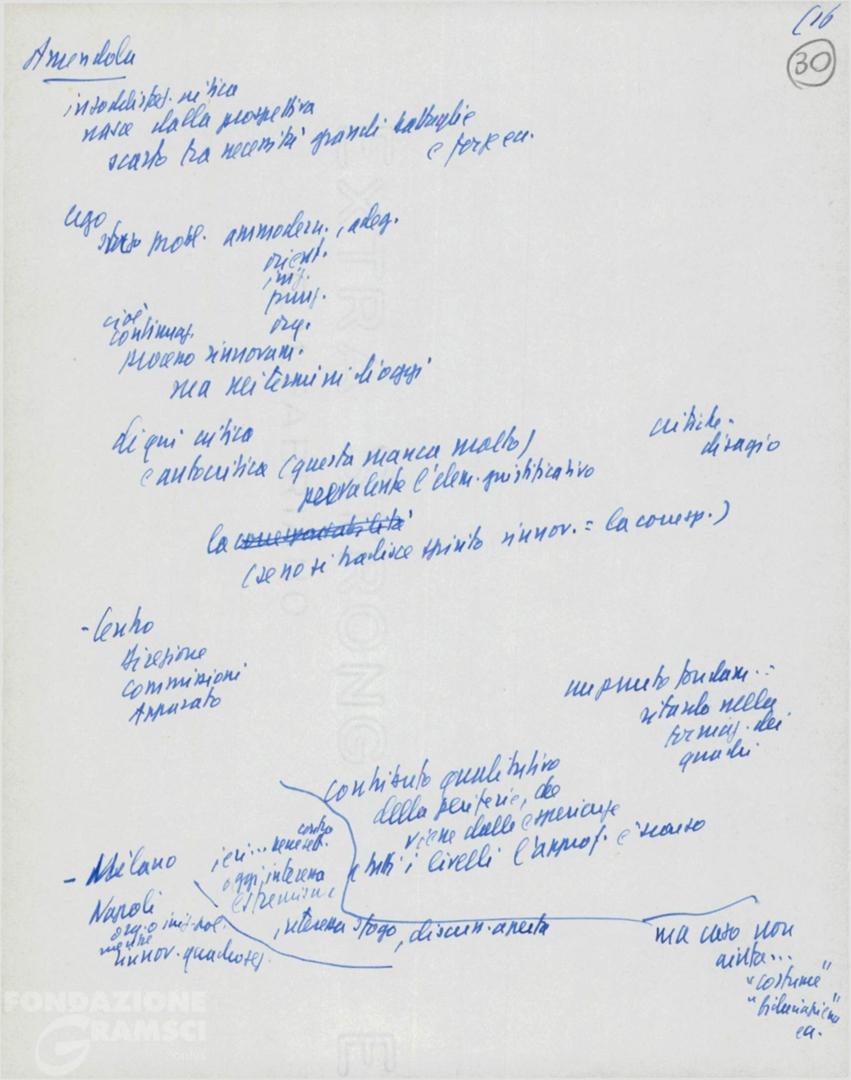 C16
30
Amendola
insoddisfaz. critica
nasce dalla prospettiva
scarto tra necessità grandi battaglie
e forze ecc.
Ugo
stesso probl. ammodern., adeg.
orient.
iniz.
funz.
org.
cioè
continuaz.
processo rinnovam.
ma nei termini di oggi
di qui critica
e autocritica (questa manca molto)
prevalente l'elem. giustificativo
critiche.
disagio
la corresponsabilità
(se no si tradisce spirito rinnov. = la corresp.)
- Centro
Direzione
Commissioni
Apparato
un punto fondam.:
ritardo nella
formaz. dei
quadri
contributo qualitativo
della periferia, che
viene dalle esperienze
a tutti i livelli l'approf. è scarso
- Milano
ieri...
contro
oggi, interna
estremismo
Napoli
org. o iniz. pol.
mentre
innov. quadro seg.
interna sfogo, discuss. aperta
ma caso non
aiuta...
"costume"
ecc.
EXTRA STRONG
FONDAZIONE
GRAMSCI
onlus